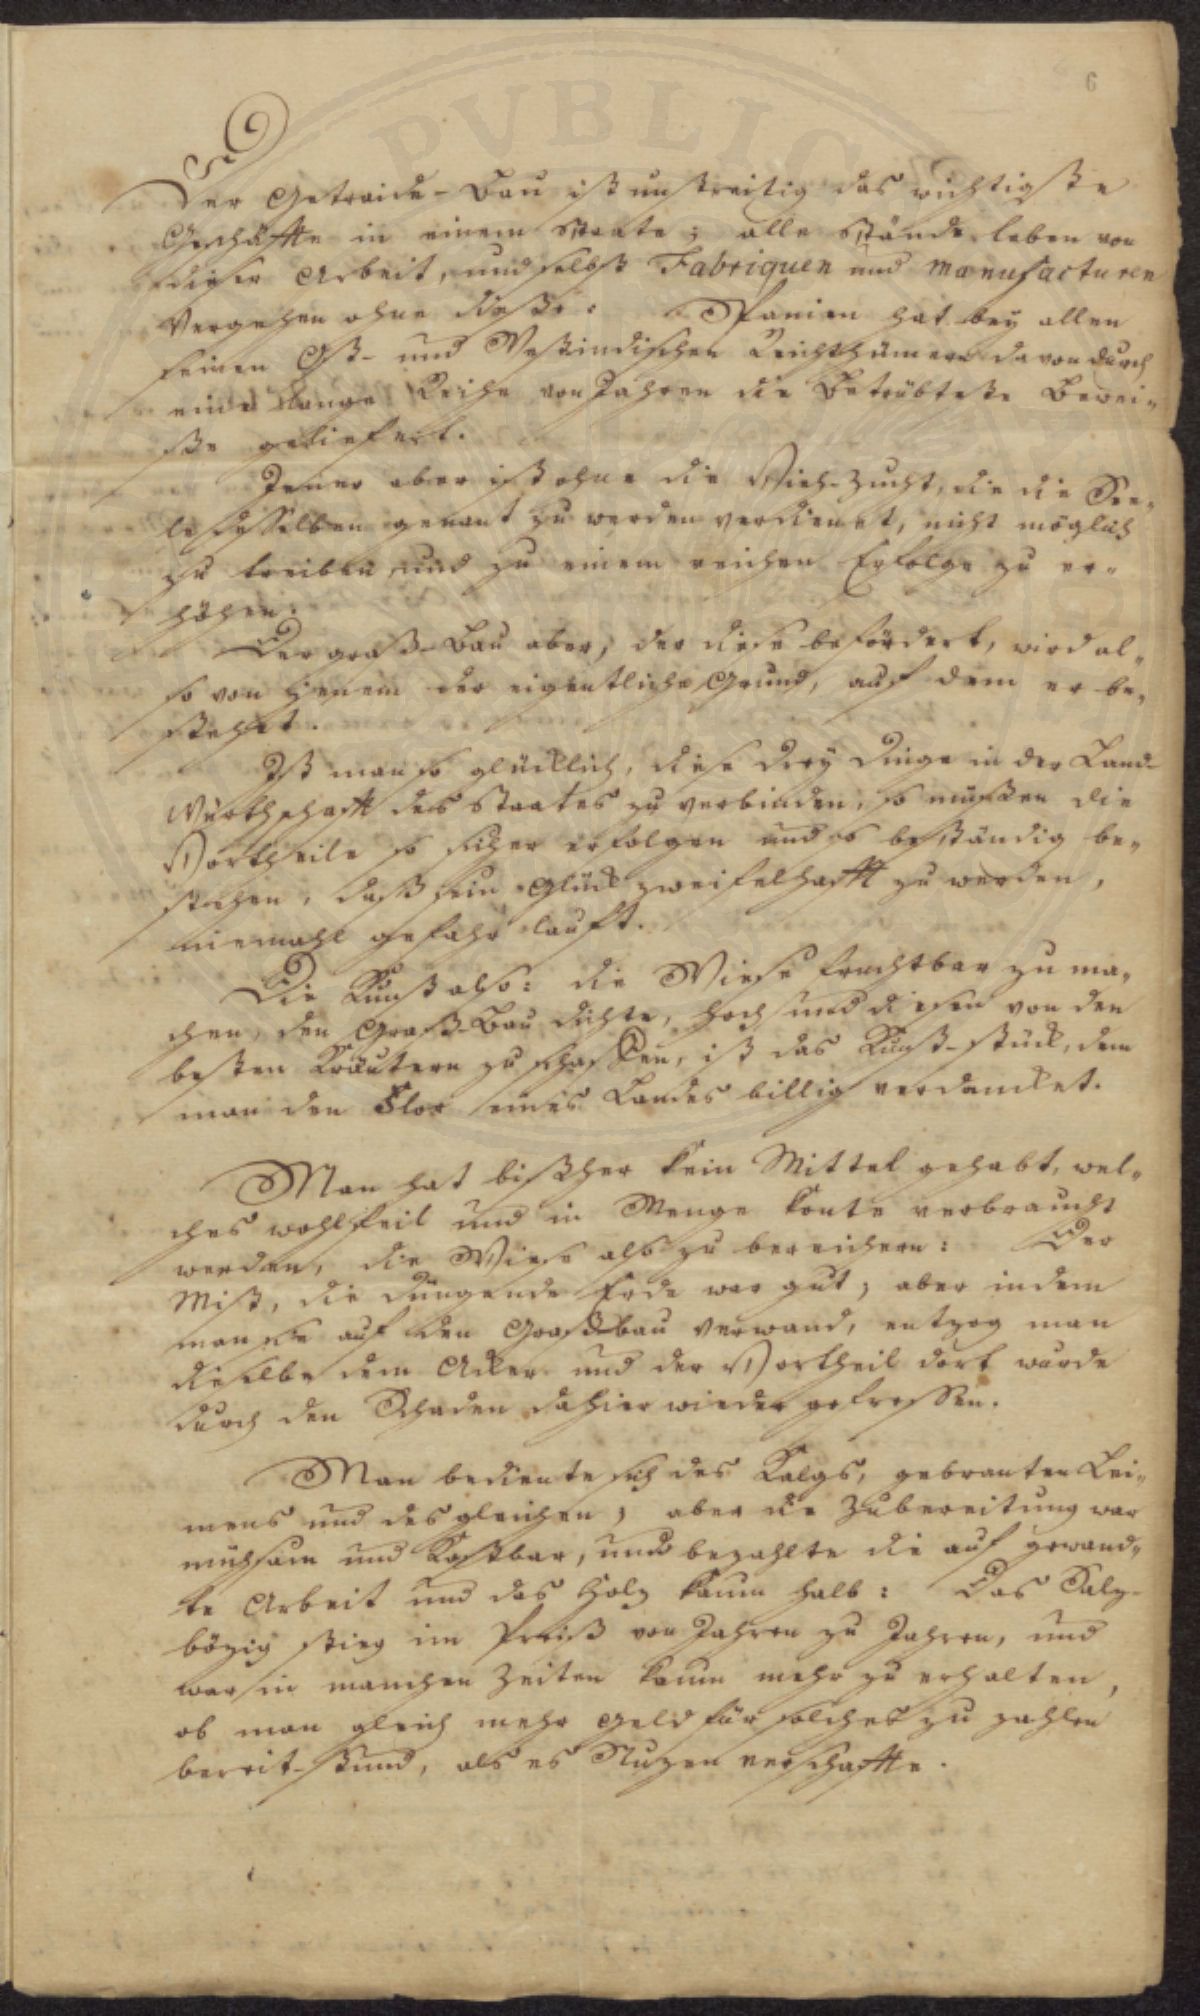 6
Der Getraide-Bau ist unstreitig das wichtigste
Geschäffte in einem Staate; alle Stände leben von
dieser Arbeit, und selbst Fabriquen und Manufacturen
vergehen ohne diese. Spanien hat bey allen
seinen Ost- und Westindischen Reichthümern davon durch
eine lange Reihe von Jahren die betrübteste Bewei-
se geliefert.
Jener aber ist ohne die Vieh-Zucht, die die See-
le desselben genant zu werden verdienet, nicht möglich
zu treiben, und zu einem reichen Erfolge zu er-
höhen.
Der graß-Bau aber, der diese befördert, wird al-
so von jenem der eigentliche Grund, auf dem er be-
stehet.
Ist man so glücklich, diese drey Dinge in der Land-
Würthschafft des Staates zu verbinden, so müssen die
Vortheile so sicher erfolgen und so beständig be-
stehen, daß sein Glück zweifelhafft zu werden,
niemahl gefahr lauft.
Die Kunst also: die Wiese fruchtbar zu ma-
chen, den Graß-Bau dichte, hoch und diesen von den
besten Kräutern zu schaffen, ist das Kunst-stück, dem
man den Flor eines Landes billig verdancket.
Man hat bißher kein Mittel gehabt, wel-
ches wohlfeil und in Menge konte verbraucht
werden, die Wiese also zu bereichern: Der
Mist, die düngende Erde war gut; aber indem
man sie auf den Graßbau verwand, entzog man
dieselbe dem Acker und der Vortheil dort wurde
durch den Schaden dahier wieder gefressen.
Man bediente sich des Kalgs, gebranten Lei-
mens und desgleichen; aber die Zubereitung war
mühsam und Kostbar, und bezahlte die auf gewand-
te Arbeit und das Holz kaum halb: Das Salz-
bözig stieg im Preiß von Jahren zu Jahren, und
war in manchen Zeiten kaum mehr zu erhalten,
ob man gleich mehr Geld für solches zu zahlen
bereit-stund, als es Nuzen verschaffte.
PVBLIC